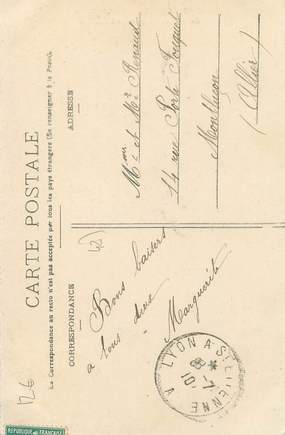 CARTE POSTALE
La Correspondance au recto n'est pas acceptée par tous les pays étrangers (Se renseigner à la Poste).
CORRESPONDANCE
ADRESSE
Bons baisers
à tous deux
Marguerite
Mr et Me Renaud
14 rue Porte Fouquet
Montluçon
(Allier)
LYON A ST ETIENNE
126
REPUBLIQUE FRANCAISE